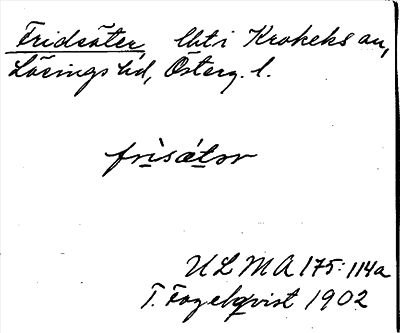 Fridsäter, lht i Krokeks sn,
Lösings hd, Österg. l.
frìsǻtər
ULMA 175:114a
T. Fogelqvist 1902